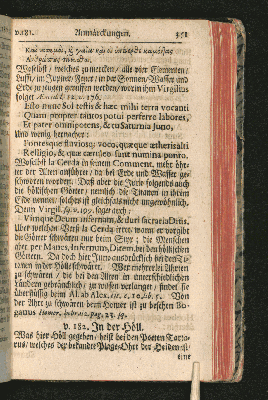 v.181. Anmärckungen. 351
Καὶ ποταμοὶ, καὶ γαῖα καὶ οἱ ὑπένερθε καμόντας
Ἀνθρώπους τίνυσθον.
Woselbst / welches zu mercken / alle vier Elementen /
Lufft / in Jupiter / Feuer / in der Sonnen / Wasser und
Erde zu zeugen geruffen werden / worin ihm Virgilius
folget Æneid. l. 12. v. 176.
Esto nunc Sol testis & hæc mihi terra vocanti
Quam propter tantos potui perferre labores,
Et pater omnipotens, & tu Saturnia Juno,
Und wenig hernacher:
Fontesque fluviosq; voco, quæque ætheris alti
Relligio, & quæ cæruleo sunt numina ponto.
Woselbst la Cerda in seinem Comment. mehr öhrter
der Alten anführet / da bei Erde und Wasser geschworen
worden. Daß aber die Juno folgends auch
die höllischen Götter / nemlich die Titanen in ihrem
Eide nennet / solches ist gleichfals nicht ungewöhnlich.
Dem Virgil. 
Vimque Deum infernam, & duri sacraria Ditis.
Uber welchen Verß la Cerda lehret / wann er vorgibt
die Götter schwüren nur beim Styx; die Menschen
aber per Manes, Infernum, Ditem, bei den höllischen
Göttern. Da doch hier Juno ausdrücklich bei den Titanen
in der Hölle schwäret. Wer mehrerlei Ahrten
zu schwären / die bei den Alten in unterschiedlichen
Ländern gebräuchlich / zu wissen verlanget / findet sie
überflüssig beim Al. ab Alex. lib. 5. c. 10.
Von der Ahrt zu schwären beim Homer ist zu besehen Boganus
Homer. hebraiz. pag. 23. sq.
v. 182. In der Höll.
Was hier Höll gegeben / heist bei den Poeten Tartarus /
welches der bekandte Plage-Ohrt der Heiden ist /
eine